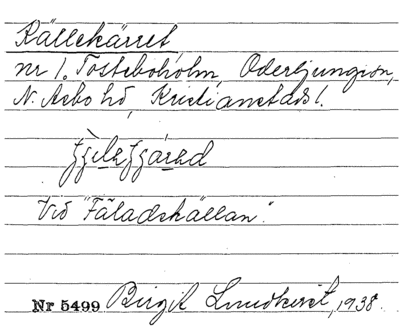 Källekärret
nr 1. Tosteboholm, Oderljungion,
N. Åsbo hd, Kristianstads l.
Vid "Fäladskällan".
Nr 5499 Birgit Lundkvist, 1938.